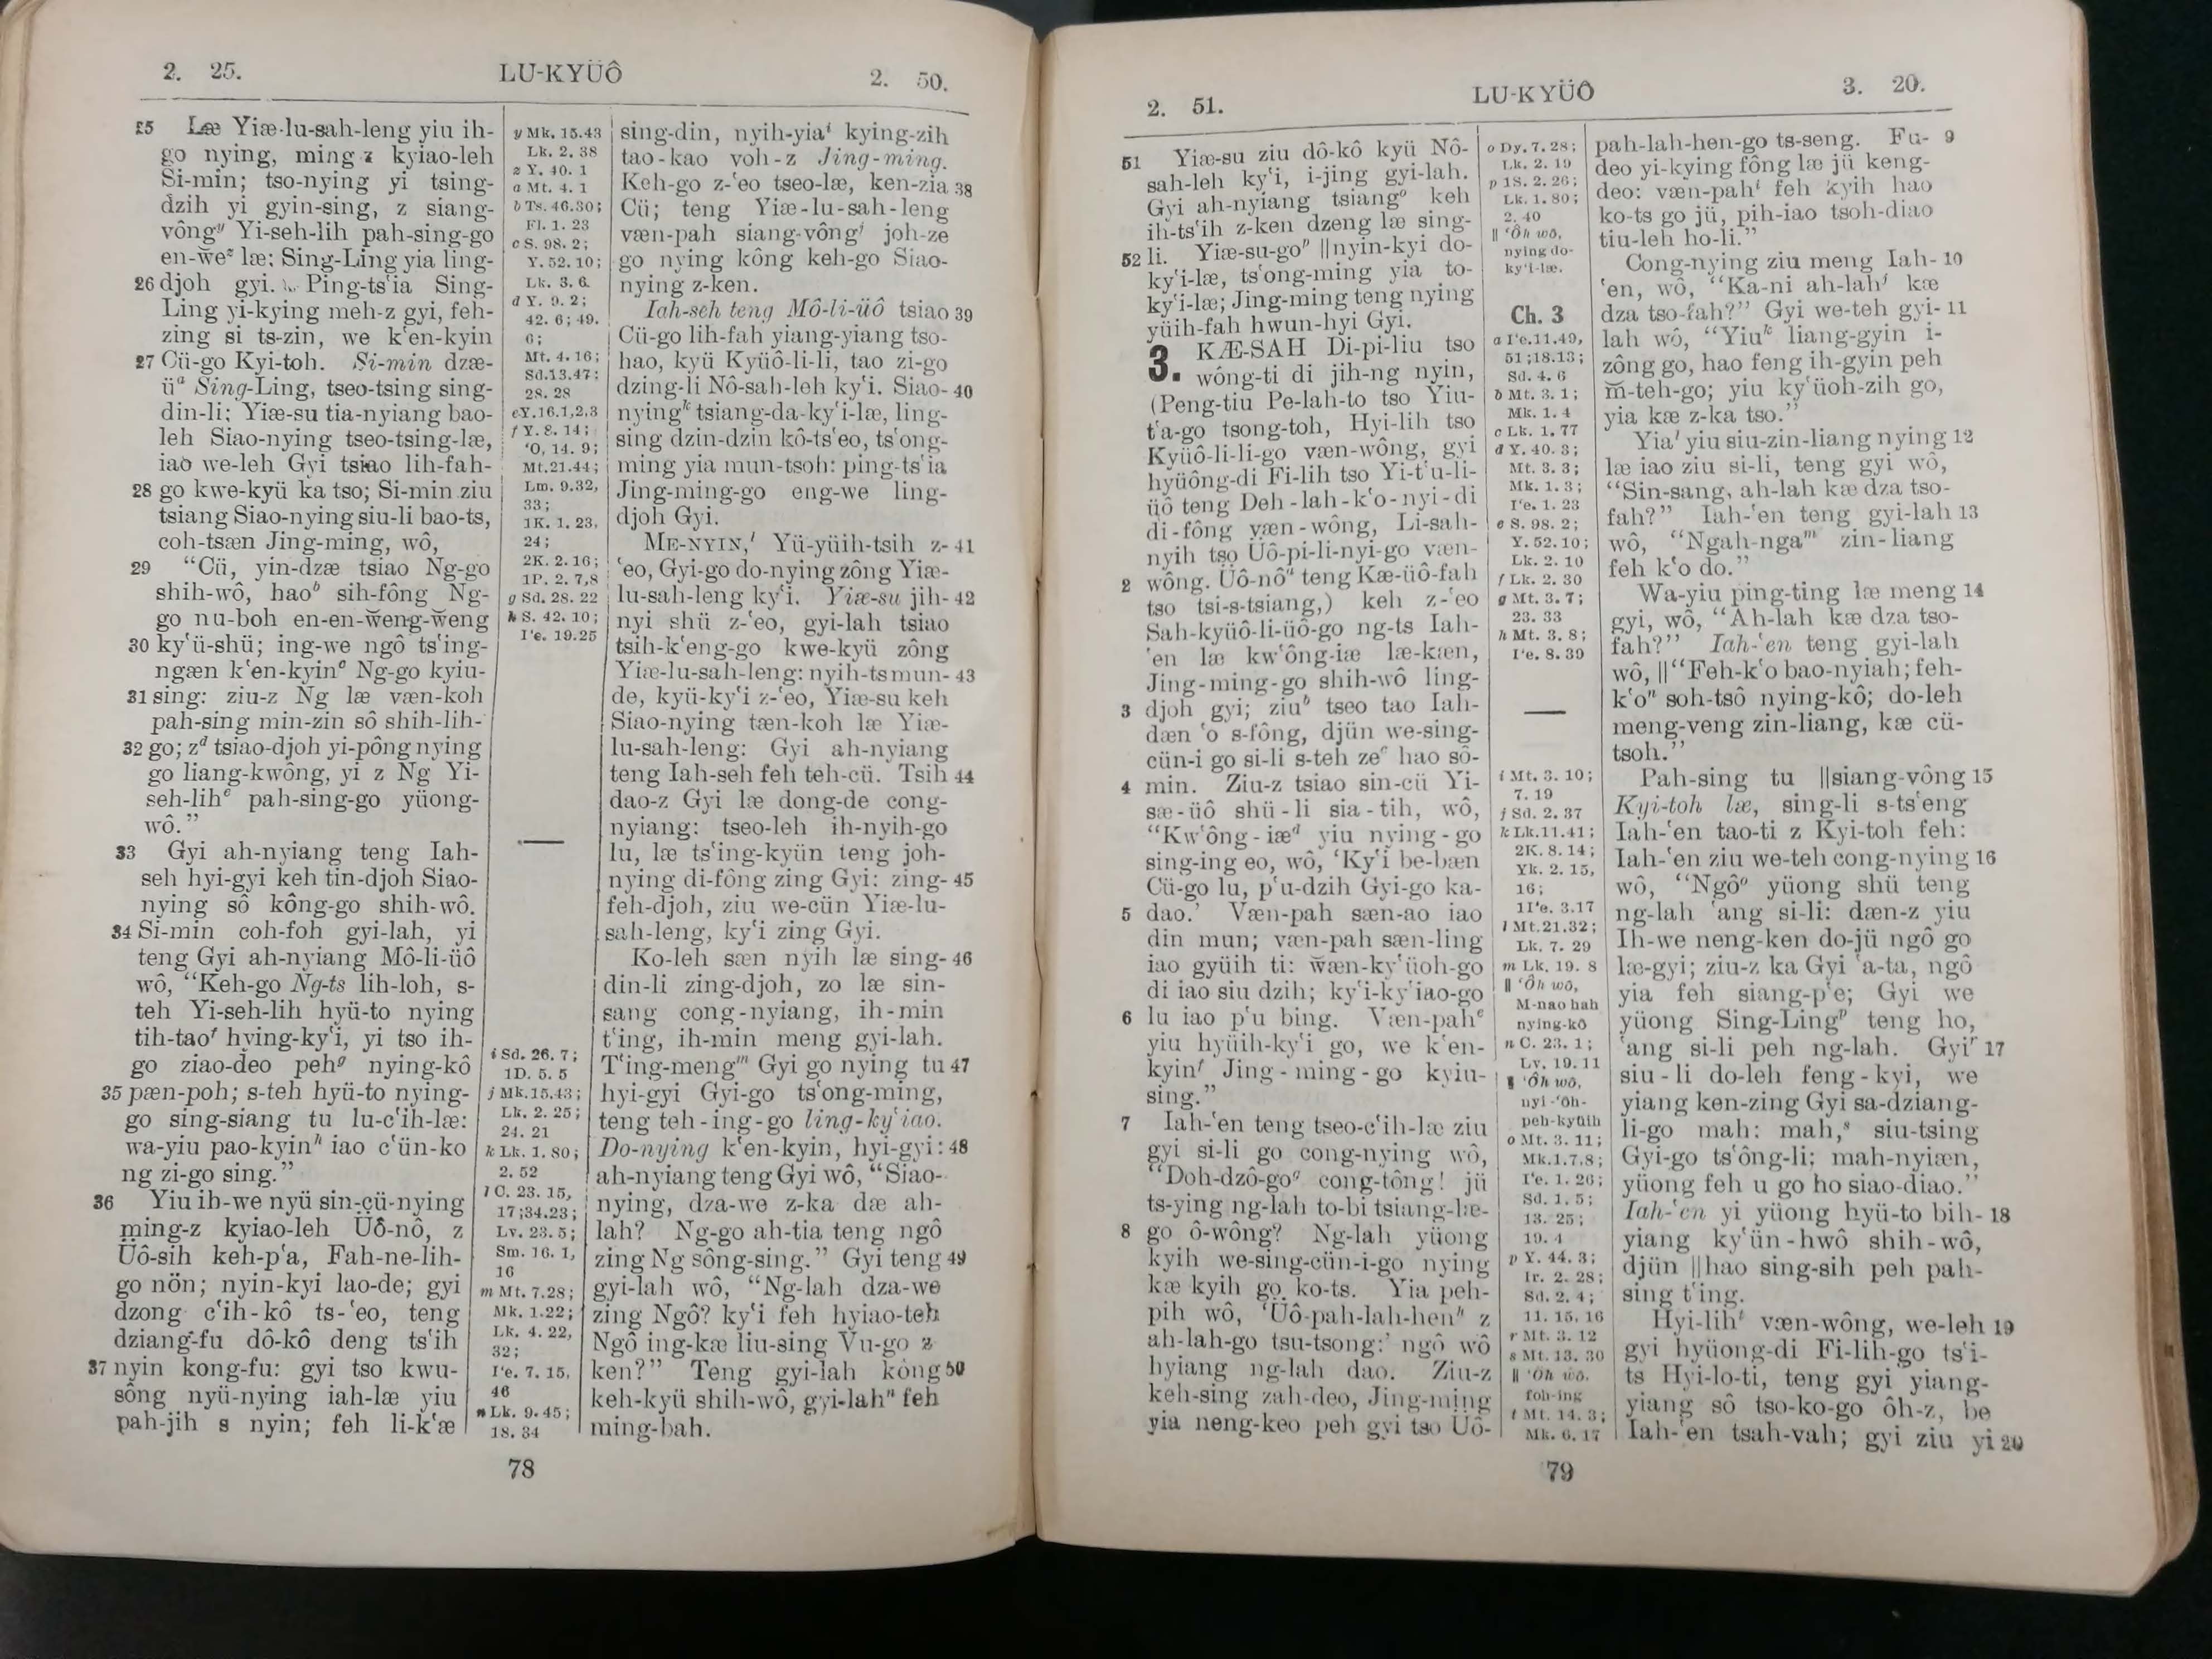 2. 25. LU-KYÜÔ 2. 50.
25 Læ Yiæ-lu-sah-leng yiu ih-
go nying, ming-z kyiao-leh
Si-min; tso-nying yi tsing-
dzih yi gyin-sing, z siang-
vôngy Yi-seh-lih pah-sing-go
en-wĕz læ: Sing-Ling yia ling-
26 djoh gyi. Ping-tsʻia Sing-
Ling yi-kying meh-z gyi, feh-
zing si ts-zin, we kʻen-kyin
27 Cü-go Kyi-toh. Si-min dzæ-
üa Sing-Ling, tseo-tsing sing-
din-li: Yiæ-su tia-nyiang bao-
leh Siao-nying tseo-tsing-læ,
iao we-leh Gyi tsiao lih-fah-
28 go kwe-kyü ka tso; Si-min ziu
tsiang Siao-nying siu-li bao-ts,
coh-tsæn Jing-ming, wô,
29 “Cü, yin-dzæ tsiao Ng-go
shih-wô, haob sih-fông Ng-
go nu-boh en-en-wĕng-wĕng
30 kyʻü-shü; ing-we ngô tsʻing-
ngæn kʻen-kyinc Ng-go kyiu-
31 sing: ziu-z Ng læ væn-koh
pah-sing min-zin sô shih-lih-
32 go; zd tsiao-djoh yi-pông nying
go liang-kwông, yi z Ng Yi-
seh-lihe pah-sing-go yüong-
wô.”
33 Gyi ah-nyiang teng Iah-
seh hyi-gyi keh tin-djoh Siao-
nying sô kông-go shih-wô.
34 Si-min coh-foh gyi-lah, yi
teng Gyi ah-nyiang Mô-li-üô
wô, “Keh-go Ng-ts lih-loh, s-
teh Yi-seh-lih hyü-to nying
tih-taof hying-kyʻi, yi tso ih-
go ziao-deo pehg nying-kô
35 pæn-poh; s-teh hyü-to nying-
go sing-siang tu lu-cʻih-læ:
wa-yiu pao-kyinh iao cʻün-ko
ng zi-go sing.”
36 Yiu ih-we nyü sin-cü-nying
ming-z kyiao-leh Üô-nô, z
Üô-sih keh-pʻa, Fah-ne-lih-
go nön; nyin-kyi lao-de; gyi
dzong cʻih-kô ts-ʻeo, teng
dziang-fu dô-kô deng tsʻih
37 nyin kong-fu: gyi tso kwu-
sông nyü-nying iah-læ yiu
pah-jih s nyin; feh li-kʻæ
y Mk. 15.43
Lk. 2. 38
z Y. 40. 1
a Mt. 4. 1
b Ts. 46.30;
Fl. 1. 23
c S. 98. 2;
Y. 52. 10;
Lk. 3. 6.
d Y. 9. 2;
42. 6; 49.
6;
Mt. 4. 16;
Sd.13.47;
28. 28
e Y.16.1,2,3
f Y. 8. 14;
ʻO, 14. 9;
Mt.21.44;
Lm. 9.32,
33;
1K. 1. 23,
24;
2K. 2. 16;
1P. 2. 7,8
g Sd. 28. 22
h S. 42. 10;
Iʻe. 19.25
i Sd. 26. 7;
1D. 5. 5
j Mk.15.43;
Lk. 2. 25;
24. 21
k Lk. 1. 80;
2. 52
l C. 23. 15,
17;34.23;
Lv. 23. 5;
Sm. 16. 1,
16
m Mt. 7.28;
Mk. 1.22;
Lk. 4. 22,
32;
Iʻe. 7. 15,
46
n Lk. 9. 45;
18. 34
sing-din, nyih-yiai kying-zih
tao-kao voh-z Jing-ming.
Keh-go z-ʻeo tseo-læ, ken-zia 38
Cü; teng Yiæ-lu-sah-leng
væn-pah siang-vôngj joh-ze
go nying kông keh-go Siao-
nying z-ken.
Iah-seh teng Mô-li-üô tsiao 39
Cü-go lih-fah yiang-yiang tso-
hao, kyü Kyüô-li-li, tao zi-go
dzing-li Nô-sah-leh kyʻi. Siao- 40
nyingk tsiang-da-kyʻi-læ, ling-
sing dzin-dzin kô-tsʻeo, tsʻong-
ming yia mun-tsoh: ping-tsʻia
Jing-ming-go eng-we ling-
djoh Gyi.
ME-NYIN,l Yü-yüih-tsih z- 41
ʻeo, Gyi-go do-nying zông Yiæ-
lu-sah-leng kyʻi. Yiæ-su jih- 42
nyi shü z-ʻeo, gyi-lah tsiao
tsih-kʻeng-go kwe-kyü zông
Yiæ-lu-sah-leng: nyih-ts mun- 43
de, kyü-kyʻi z-ʻeo, Yiæ-su keh
Siao-nying tæn-koh læ Yiæ-
lu-sah-leng: Gyi ah-nyiang
teng Iah-seh feh teh-cü. Tsih 44
dao-z Gyi læ dong-de cong-
nyiang: tseo-leh ih-nyih-go
lu, læ tsʻing-kyün teng joh-
nying di-fông zing Gyi: zing- 45
feh-djoh, ziu we-cün Yiæ-lu-
sah-leng, kyʻi zing Gyi.
Ko-leh sæn nyih læ sing- 46
din-li zing-djoh, zo læ sin-
sang cong-nyiang, ih-min
tʻing, ih-min meng gyi-lah.
Tʻing-mengm Gyi go nying tu 47
hyi-gyi Gyi-go tsʻong-ming,
teng teh-ing-go ling-kyʻiao.
Do-nying kʻen-kyin, hyi-gyi: 48
ah-nyiang teng Gyi wô, “Siao-
nying, dza-we z-ka dæ ah-
lah? Ng-go ah-tia teng ngô
zing Ng sông-sing.” Gyi teng 49
gyi-lah wô, “Ng-lah dza-we
zing Ngô? kyʻi feh hyiao-teh
Ngô ing-kæ liu-sing Vu-go z-
ken?” Teng gyi-lah kông 50
keh-kyü shih-wô, gyi-lahn feh
ming-bah.
78
2. 51. LU-KYÜÔ 3. 20.
51 Yiæ-su ziu dô-kô kyü Nô-
sah-leh kyʻi, i-jing gyi-lah.
Gyi ah-nyiang tsiango keh
ih-tsʻih z-ken dzeng læ sing-
52 li. Yiæ-su-gop ||nyin-kyi do-
kyʻi-læ, tsʻong-ming yia to-
kyʻi-læ; Jing-ming teng nying
yüih-fah hwun-hyi Gyi.
3. KÆ-SAH Di-pi-liu tso
wông-ti di jih-ng nyin,
(Peng-tiu Pe-lah-to tso Yiu-
tʻa-go tsong-toh, Hyi-lih tso
Kyüô-li-li-go væn-wông, gyi
hyüông-di Fi-lih tso Yi-tʻu-li-
üô teng Deh-lah-kʻo-nyi-di
di-fông væn-wông, Li-sah-
nyih tso Üô-pi-li-nyi-go væn-
2 wông. Üô-nôa teng Kæ-üô-fah
tso tsi-s-tsiang,) keh z-ʻeo
Sah-kyüô-li-üô-go ng-ts Iah-
ʻen læ kwʻông-iæ læ-kæn,
Jing-ming-go shih-wô ling-
3 djoh gyi; ziub tseo tao Iah-
dæn ʻo s-fông, djün we-sing-
cün-i go si-li s-teh zec hao sô-
4 min. Ziu-z tsiao sin-cü Yi-
sæ-üô shü-li sia-tih, wô,
“Kwʻông-iæd yiu nying-go
sing-ing eo, wô, ʻKyʻi be-bæn
Cü-go lu, pʻu-dzih Gyi-go ka-
5 dao.’ Væn-pah sæn-ao iao
din mun; væn-pah sæn-ling
iao gyüih ti: wæn-kyʻüoh-go
di iao siu dzih; kyʻi-kyʻiao-go
6 lu iao pʻu bing. Væn-pahe
yiu hyüih-kyʻi go, we kʻen-
kyinf Jing-ming-go kyiu-
sing.”
7 Iah-ʻen teng tseo-cʻih-læ ziu
gyi si-li go cong-nying wô,
“Doh-dzô-gog cong-tông! jü
ts-ying ng-lah to-bi tsiang-læ-
8 go ô-wông? Ng-lah yüong
kyih we-sing-cün-i-go nying
kæ kyih go ko-ts. Yia peh-
pih wô, ʻÜô-pah-lah-henh z
ah-lah-go tsu-tsong:’ ngô wô
hyiang ng-lah dao. Ziu-z
keh-sing zah-deo, Jing-ming
yia neng-keo peh gyi tso Üô-
o Dy. 7. 28;
Lk. 2. 19
p 1S. 2. 26;
Lk. 1. 80;
2. 40
|| ʻÔh wô,
nying do-
kyʻi-læ.
Ch. 3
a Iʻe.11.49,
51;18.13;
Sd. 4. 6
b Mt. 3. 1;
Mk. 1. 4
c Lk. 1. 77
d Y. 40. 3;
Mt. 3. 3;
Mk. 1. 3;
Iʻe. 1. 23
e S. 98. 2;
Y. 52. 10;
Lk. 2. 10
f Lk. 2. 30
g Mt. 3. 7;
23. 33
h Mt. 3. 8;
Iʻe. 8. 39
i Mt. 3. 10;
7. 19
j Sd. 2. 37
k Lk.11.41;
2K. 8. 14;
Yk. 2. 15,
16;
1Iʻe. 3.17
l Mt.21.32;
Lk. 7. 29
m Lk. 19. 8
|| ʻÔh wô,
M-nao hah
nying-kô
n C. 23. 1;
Lv. 19. 11
|| ʻÔh wô,
nyi-ʻôh-
peh-kyüih
o Mt. 3. 11;
Mk.1.7,8;
Iʻe. 1. 26;
Sd. 1. 5;
13. 25;
19. 4
p Y. 44. 3;
Ir. 2. 28;
Sd. 2. 4;
11. 15, 16
r Mt. 3. 12
s Mt. 13. 30
|| ʻÔh wô.
foh-ing
t Mt. 14. 3;
Mk. 6. 17
pah-lah-hen-go ts-seng. Fu- 9
deo yi-kying fông læ jü keng-
deo: væn-pahi feh kyih hao
ko-ts go jü, pih-iao tsoh-diao
tiu-leh ho-li.”
Cong-nying ziu meng Iah- 10
ʻen, wô, “Ka-ni ah-lahj kæ
dza tso-fah?” Gyi we-teh gyi- 11
lah wô, “Yiuk liang-gyin i-
zông go, hao feng ih-gyin peh
m̆-teh-go; yiu kyʻüoh-zih go,
yia kæ z-ka tso.”
Yial yiu siu-zin-liang nying 12
læ iao ziu si-li, teng gyi wô,
“Sin-sang, ah-lah kæ dza tso-
fah?” Iah-ʻen teng gyi-lah 13
wô, “Ngah-ngam zin-liang
feh kʻo do.”
Wa-yiu ping-ting læ meng 14
gyi, wô, “Ah-lah kæ dza tso-
fah?” Iah-ʻen teng gyi-lah
wô, ||“Feh-kʻo bao-nyiah; feh-
kʻon soh-tsô nying-kô; do-leh
meng-veng zin-liang, kæ cü-
tsoh.”
Pah-sing tu ||siang-vông 15
Kyi-toh læ, sing-li s-tsʻeng
Iah-ʻen tao-ti z Kyi-toh feh:
Iah-ʻen ziu we-teh cong-nying 16
wô, “Ngôo yüong shü teng
ng-lah ʻang si-li: dæn-z yiu
Ih-we neng-ken do-jü ngô go
læ-gyi; ziu-z ka Gyi ʻa-ta, ngô
yia feh siang-pʻe; Gyi we
yüong Sing-Lingp teng ho,
ʻang si-li peh ng-lah. Gyir 17
siu-li do-leh feng-kyi, we
yiang ken-zing Gyi sa-dziang-
li-go mah: mah,s siu-tsing
Gyi-go tsʻông-li; mah-nyiæn,
yüong feh u go ho siao-diao.”
Iah-ʻen yi yüong hyü-to bih- 18
yiang kyʻün-hwô shih-wô,
djün ||hao sing-sih peh pah-
sing tʻing.
Hyi-liht væn-wông, we-leh 19
gyi hyüong-di Fi-lih-go tsʻi-
ts Hyi-lo-ti, teng gyi yiang-
yiang sô tso-ko-go ôh-z, be
Iah-ʻen tsah-vah; gyi ziu yi 20
79